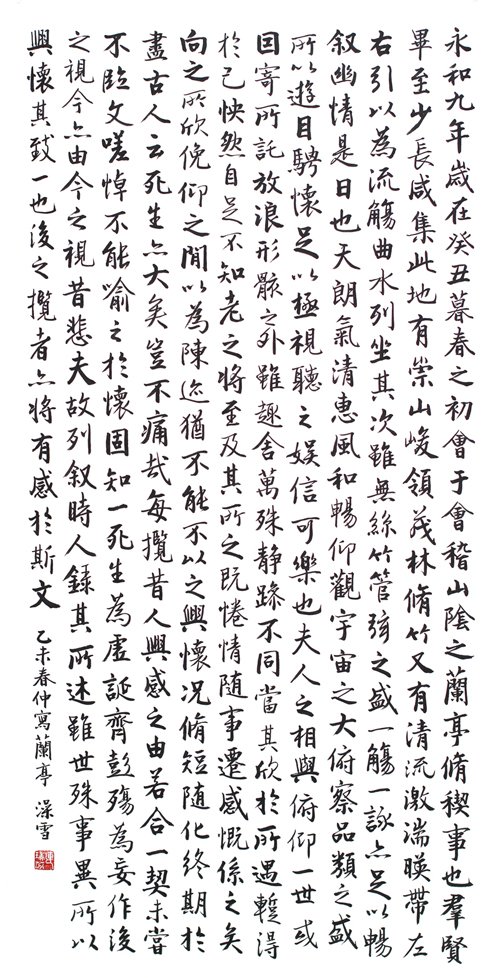 永和九年歲在癸丑暮春之初會于會稽山陰之蘭亭脩稧事也羣賢
畢至少長咸集此地有崇山峻領茂林脩竹又有清流激湍暎帶左
右引以為流觴曲水列坐其次雖無絲竹管弦之盛一觴一詠亦足以暢
叙幽情是日也天朗氣清惠風和暢仰觀宇宙之大俯察品類之盛
所以遊目騁懷足以極視聽之娛信可樂也夫人之相與俯仰一世或
因寄所託放浪形骸之外雖趣舍萬殊静躁不同當其欣於所遇蹔得
於己怏然自足不知老之将至及其所之既惓情随事遷感慨係之矣
向之所欣俛仰之間以為陳迹猶不能不以之興懷况脩短随化終期於
盡古人云死生亦大矣豈不痛哉每攬昔人興感之由若合一契未嘗
不臨文嗟悼不能喻之於懷固知一死生為虛誕齊彭殤為妄作後
之視今亦由今之視昔悲夫故列叙時人錄其所述雖世殊事異所以
興懷其致一也後之攬者亦将有感於斯文
乙未春仲寫蘭亭 澡雪